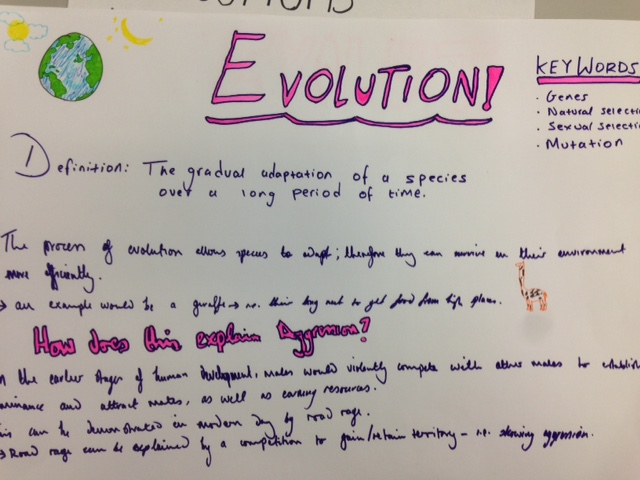 EVOLUTION!
KEY WORDS
• Genes
• Natural selecti
• Sexual selecti
• Mutation
Definition: The gradual adaptation of a species
over a long period of time.
The process of evolution allows species to adapt; therefore they can survive in their environment
more efficiently.
→ an example would be a giraffe → i.e. their long neck to get food from high places.
How does this explain Aggression?
n the earlier stages of human development, males would violently compete with other males to establish
ominance and attract mates, as well as earning resources.
is can be demonstrated in modern day by road rage.
→ Road rage can be explained by a competition to gain/retain territory – i.e. showing aggression.